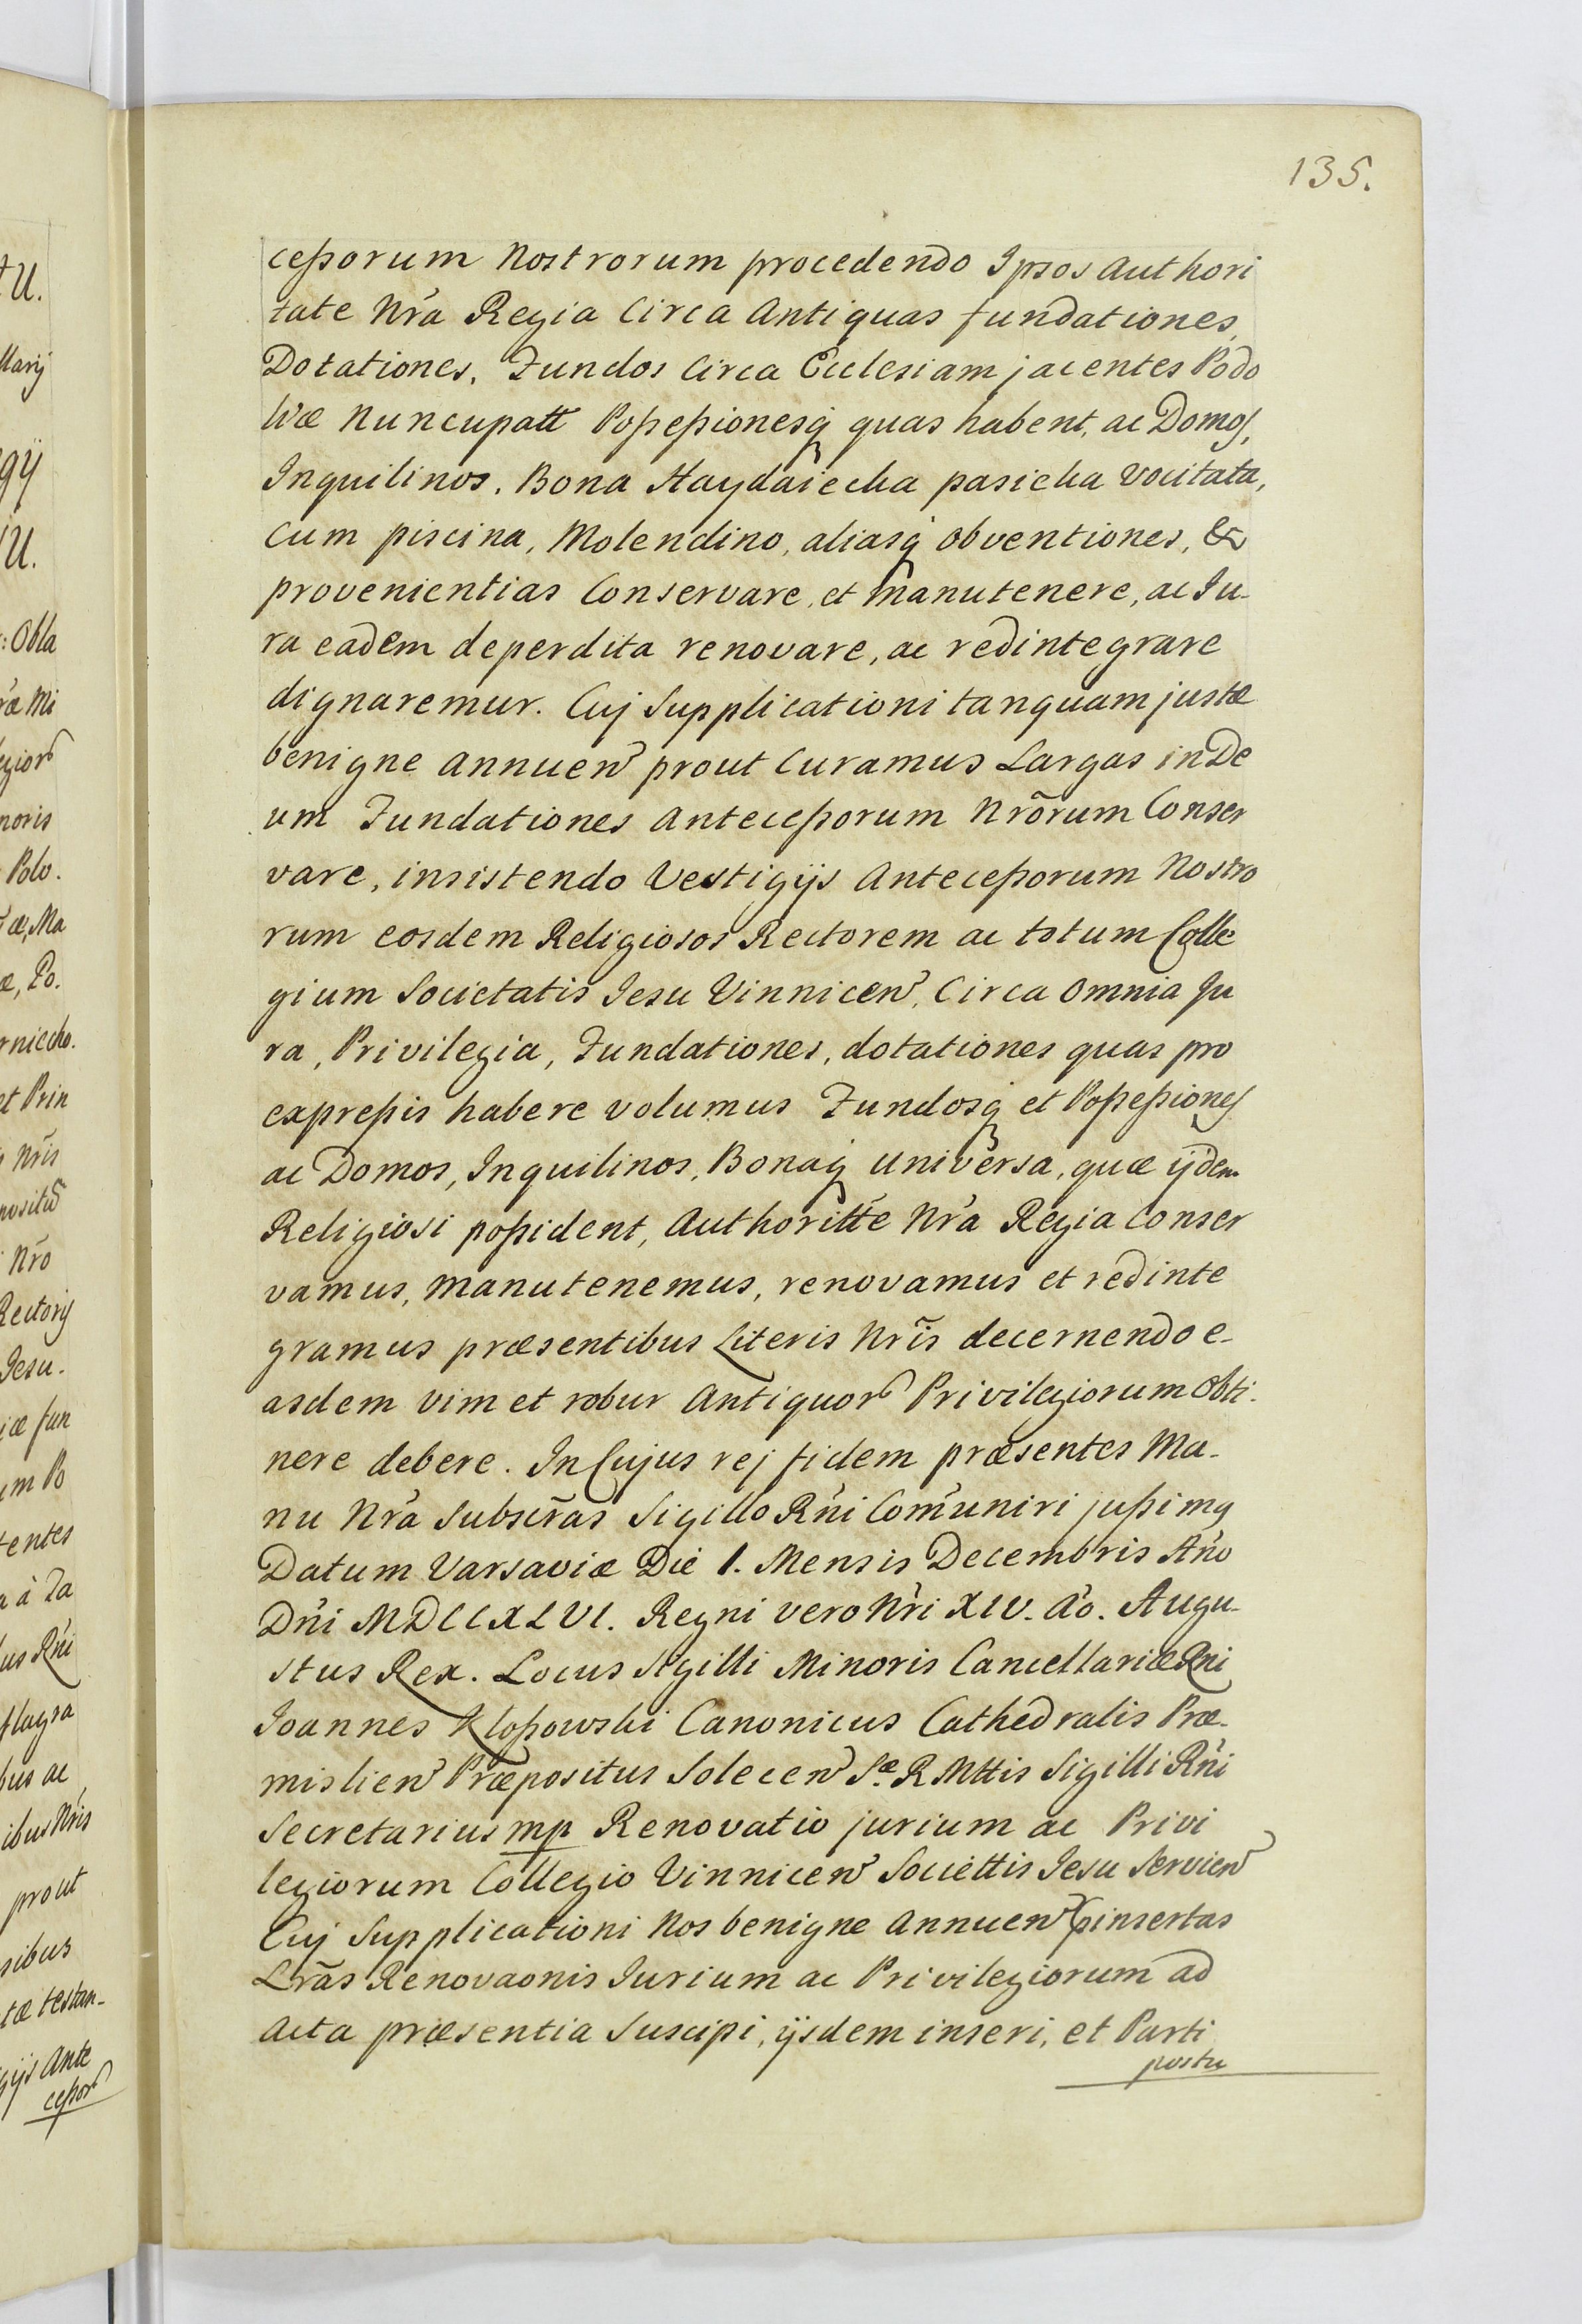 135.
ceßorum Nostrorum procedendo Ipsos Authori
tate Nr̃a Regia Circa Antiquas fundationes,
Dotationes, Fundos Circa Ecclesiam jacentes Podo
lvæ Nuncupatt Poßeßionesq́ quas habent, ac Domos,
Inquilinos, Bona Haydaiecka pasieka Vocitata,
Cum piscina, Molendino, aliasq́ obventiones, &
provenientias Conservare, et manutenere, ac Ju-
ra eadem deperdita renovare, ac redintegrare
dignaremur. Cuj Supplicationi tanquam justæ
benigne annuen̄ prout Curamus Largas in De
um Fundationes Anteceßorum Nrõrum Conser
vare, insistendo Vestigijs Anteceßorum Nostro
rum eosdem Religiosos Rectorem ac totum Colle
gium Societatis Jesu Vinnicen̄, Circa Omnia Ju
ra, Privilegia, Fundationes, dotationes quas pro
expreßis habere volumus Fundosq́ et Poßeßiones
ac Domos, Inquilinos, Bonaq́ universa, quæ ijdem
Religiosi poßident, Authoritt́e Nr̃a Regia Conser
vamus, manutenemus, renovamus et redinte
gramus præsentibus Literis Nrĩs decernendo e-
asdem vim et robur Antiquor̄ Privilegiorum Obti-
nere debere. In Cujus rej fidem præsentes Ma-
nu Nr̃a Subscr̃as Sigillo Rñi Com̃uniri jußimq
Datum Varsaviæ Die 1. Mensis Decembris Añno
Dñi MDCCXLVI. Regni vero Nr̃i XIV. Ao̓. Augu-
stus Rex. Locus Sigilli Minoris Cancellariæ Rñi
Joannes Kloßowski Canonicus Cathedralis Præ-
mislien̄ Præpositus Solecen̄ S.æ R Mttis Sigilli Rñi
Secretarius mp Renovatio jurium ac Privi
legiorum Collegio Vinnicen̄ Societtis Jesu Servien̄
Cuj Supplicationi Nos benigne Annuen̄ p̃insertas
Lrãs Renovaonis Jurium ac Privilegiorum ad
Acta præsentia Suscipi, ijsdem inseri, et Parti
postu